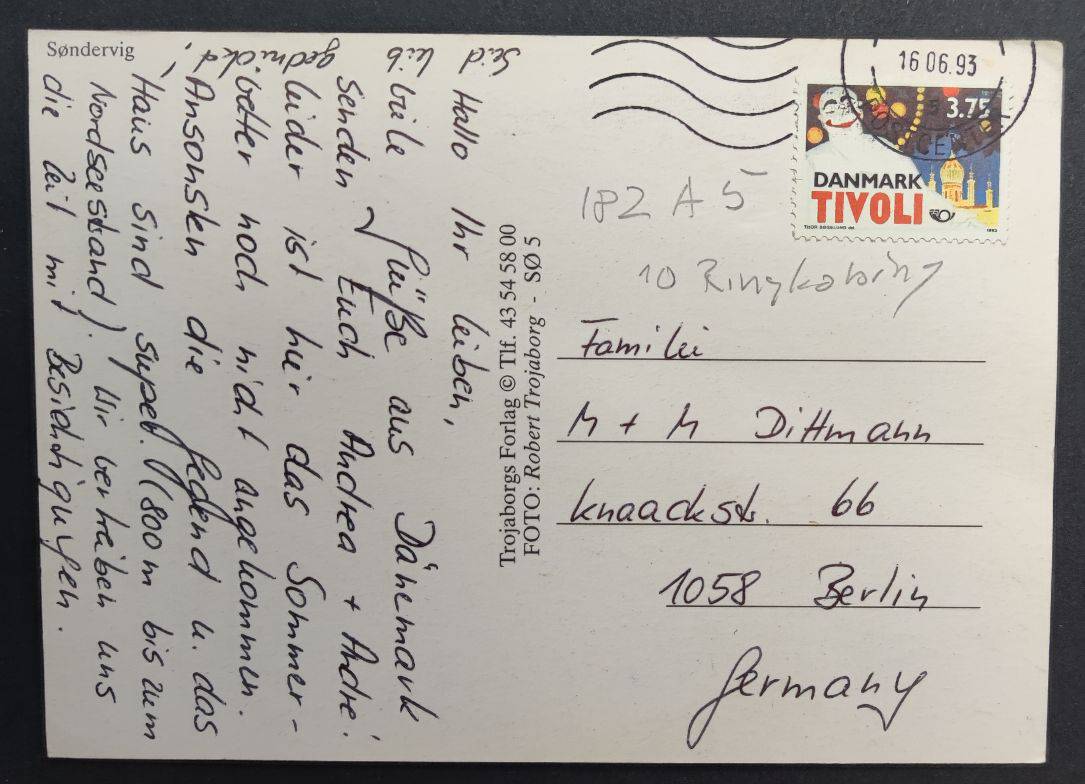 Søndervig
Hallo Ihr leiben,
viele Grüße aus Dänemark
senden Euch Andrea + Andre!
leider ist hier das Sommer-
wetter noch nicht angekommen.
Ansonsten die Gegend u. das
Haus sind super! (800m bis zum
Nordseestrand). Wir vertreiben uns
die Zeit mit Besichtigungen.
Seid leib gedrückt!
Trojaborgs Forlag © Tlf. 43 54 58 00
FOTO: Robert Trojaborg - SØ 5
16 06.93
3.75
DANMARK
TIVOLI
THOR BØGELUND del.
1993
182 A 5
10 Ringkobing
Familei
M + M Dittmann
Knaackstr. 66
1058 Berlin
Germany